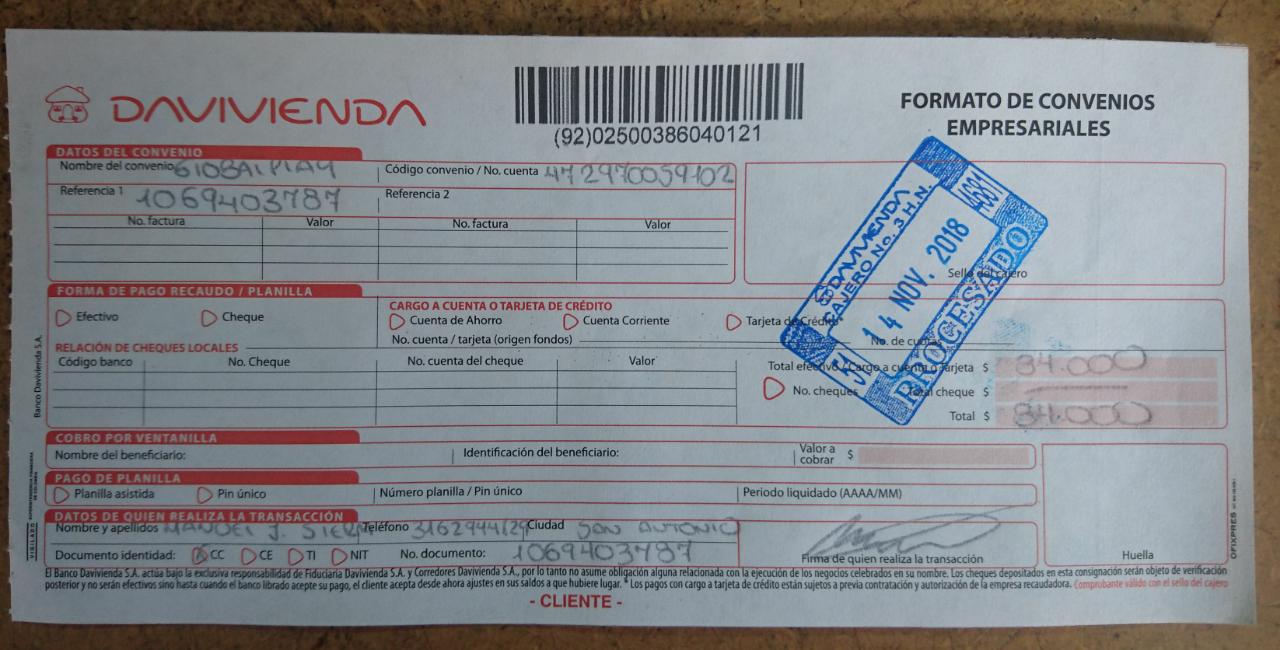 DAVIVIENDA
(92)02500386040121
FORMATO DE CONVENIOS
EMPRESARIALES
DATOS DEL CONVENIO
Nombre del convenio GlOBAl PlAY Código convenio / No. cuenta 472970059102
Referencia 1 1069403787 Referencia 2
No. factura Valor No. factura Valor
Sello del cajero
DAVIVIENDA
CAJERO No. 3 H.N.
4681
14 NOV. 2018
51
PROCESADO
FORMA DE PAGO RECAUDO / PLANILLA
Efectivo Cheque
CARGO A CUENTA O TARJETA DE CRÉDITO
Cuenta de Ahorro Cuenta Corriente Tarjeta de Crédito
No. cuenta / tarjeta (origen fondos) No. de cuotas
RELACIÓN DE CHEQUES LOCALES
Código banco No. Cheque No. cuenta del cheque Valor
Total efectivo / Cargo a cuenta o tarjeta $ 84.000
No. cheques Total cheque $
Total $ 84.000
COBRO POR VENTANILLA
Nombre del beneficiario: Identificación del beneficiario: Valor a cobrar $
PAGO DE PLANILLA
Planilla asistida Pin único Número planilla / Pin único Periodo liquidado (AAAA/MM)
DATOS DE QUIEN REALIZA LA TRANSACCIÓN
Nombre y apellidos MANUEl J. SIERRA Teléfono 3162944129 Ciudad SAN ANTONIO
Documento identidad: CC CE TI NIT No. documento: 1069403787 Firma de quien realiza la transacción
Huella
El Banco Davivienda S.A. actúa bajo la exclusiva responsabilidad de Fiduciaria Davivienda S.A. y Corredores Davivienda S.A., por lo tanto no asume obligación alguna relacionada con la ejecución de los negocios celebrados en su nombre. Los cheques depositados en esta consignación serán objeto de verificación
posterior y no serán efectivos sino hasta cuando el banco librado acepte su pago, el cliente acepta desde ahora ajustes en sus saldos a que hubiere lugar. * Los pagos con cargo a tarjeta de crédito están sujetos a previa contratación y autorización de la empresa recaudadora. Comprobante válido con el sello del cajero
- CLIENTE -
Banco Davivienda S.A.
VIGILADO SUPERINTENDENCIA FINANCIERA DE COLOMBIA
OFIXPRES